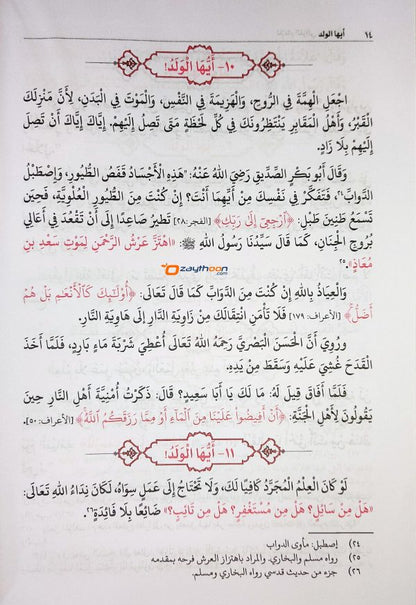 ١٤ أيها الولد
١٠- أَيُّهَا الْوَلَدُ!
اجْعَلِ الْهِمَّةَ فِي الرُّوحِ، وَالْهَزِيمَةَ فِي النَّفْسِ، وَالْمَوْتَ فِي الْبَدَنِ، لِأَنَّ مَنْزِلَكَ
الْقَبْرُ، وَأَهْلُ الْمَقَابِرِ يَنْتَظِرُونَكَ فِي كُلِّ لَحْظَةٍ مَتَى تَصِلُ إِلَيْهِمْ. إِيَّاكَ إِيَّاكَ أَنْ تَصِلَ
إِلَيْهِمْ بِلَا زَادٍ.
وَقَالَ أَبُو بَكْرٍ الصِّدِّيقُ رَضِيَ اللهُ عَنْهُ: "هَذِهِ الْأَجْسَادُ قَفَصُ الطُّيُورِ، وَإِصْطَبْلُ
الدَّوَابِّ"٢٤، فَتَفَكَّرْ فِي نَفْسِكَ مِنْ أَيِّهِمَا أَنْتَ؟ إِنْ كُنْتَ مِنَ الطُّيُورِ الْعُلْوِيَّةِ، فَحِينَ
تَسْمَعُ طَنِينَ طَبْلِ: ﴿ارْجِعِي إِلَى رَبِّكِ﴾ [الفجر:٢٨] تَطِيرُ صَاعِدًا إِلَى أَنْ تَقْعُدَ فِي أَعَالِي
بُرُوجِ الْجِنَانِ، كَمَا قَالَ سَيِّدُنَا رَسُولُ اللهِ ﷺ: «اهْتَزَّ عَرْشُ الرَّحْمَنِ لِمَوْتِ سَعْدِ بنِ
مُعَاذٍ».٢٥
Ozaythoon.com
وَالْعِيَاذُ بِاللهِ إِنْ كُنْتَ مِنَ الدَّوَابِّ كَمَا قَالَ تَعَالَى: ﴿أُوْلَـٰٓئِكَ كَٱلْأَنْعَـٰمِ بَلْ هُمْ
أَضَلُّ﴾ [الأعراف: ١٧٩] فَلَا تَأْمَنِ انْتِقَالَكَ مِنْ زَاوِيَةِ الدَّارِ إِلَى هَاوِيَةِ النَّارِ.
وَرُوِيَ أَنَّ الْحَسَنَ الْبَصْرِيَّ رَحِمَهُ اللهُ تَعَالَى أُعْطِيَ شَرْبَةَ مَاءٍ بَارِدٍ، فَلَمَّا أَخَذَ
الْقَدَحَ غُشِيَ عَلَيْهِ وَسَقَطَ مِنْ يَدِهِ.
فَلَمَّا أَفَاقَ قِيلَ لَهُ: مَا لَكَ يَا أَبَا سَعِيدٍ؟ قَالَ: ذَكَرْتُ أُمْنِيَّةَ أَهْلِ النَّارِ حِينَ
يَقُولُونَ لِأَهْلِ الْجَنَّةِ: ﴿أَنْ أَفِيضُواْ عَلَيْنَا مِنَ ٱلْمَآءِ أَوْ مِمَّا رَزَقَكُمُ ٱللَّهُ﴾ [الأعراف: ٥٠].
١١- أَيُّهَا الْوَلَدُ!
لَوْ كَانَ الْعِلْمُ الْمُجَرَّدُ كَافِيًا لَكَ، وَلَا تَحْتَاجُ إِلَى عَمَلٍ سِوَاهُ، لَكَانَ نِدَاءُ اللهِ تَعَالَى:
«هَلْ مِنْ سَائِلٍ؟ هَلْ مِنْ مُسْتَغْفِرٍ؟ هَلْ مِن تَائِبٍ؟» ضَائِعًا بِلَا فَائِدَةٍ٢٦.
(٢٤) إصطبل: مأوى الدواب
(٢٥) رواه مسلم والبخاري. والمراد باهتزاز العرش فرحه بمقدمه
(٢٦) جزء من حديث قدسي رواه البخاري ومسلم.